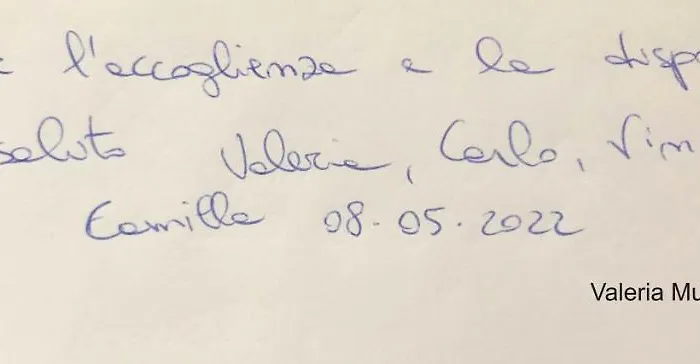 l'accoglienza e la disp
saluto Valeria, Carlo, Vin
Camilla 08.05.2022
Valeria Mu